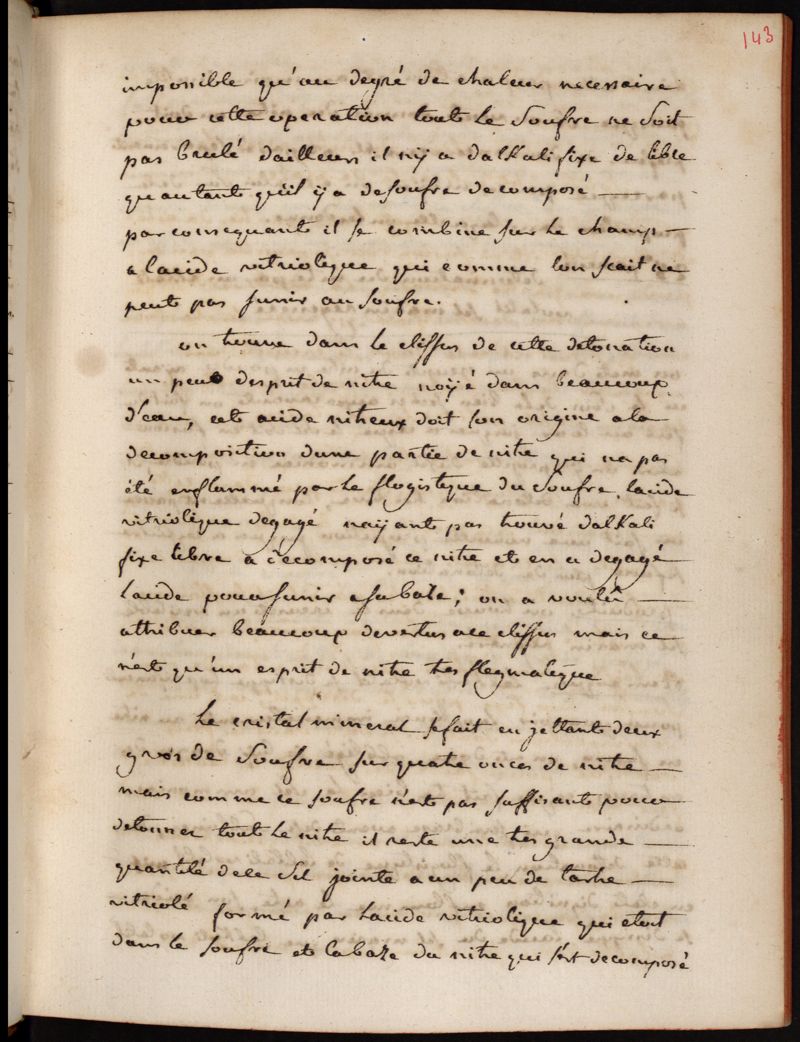 143
impossible qu'au degré de chaleur necessaire
pour cette operation tout le Soufre ne Soit
pas brulé dailleurs il ny a dalkali fixe de libre
quautant quil y a de soufre decomposé —
par consequant il se combine sur le champ —
a lacide vitriolique qui comme lon scait ne
peut pas sunir au soufre.
on trouve dans le clissus de cette detonation
un peu desprit de nitre noyé dans beaucoup
d'eau, cet acide nitreux doit son origine a la
decomposition dune partie de nitre qui na pas
été enflammé par le flogistique du Soufre, lacide
vitriolique degagé nayant pas trouvé dalkali
fixe libre a decomposé ce nitre et en a degagé
lacide pour sunir a sa baze; on a voulu —
attribuer beaucoup de vertus a ce clissus mais ce
n'est qu'un esprit de nitre tres flegmatique
Le cristal mineral se fait en jettant deux
gros de Soufre sur quatre onces de nitre —
mais comme ce soufre n'est pas suffisant pour
detonner tout le nitre il reste une tres grande —
quantité de ce Sel jointe a un peu de tartre —
vitriolé formé par lacide vitriolique qui etoit
dans le soufre et la baze du nitre qui s'est decomposé